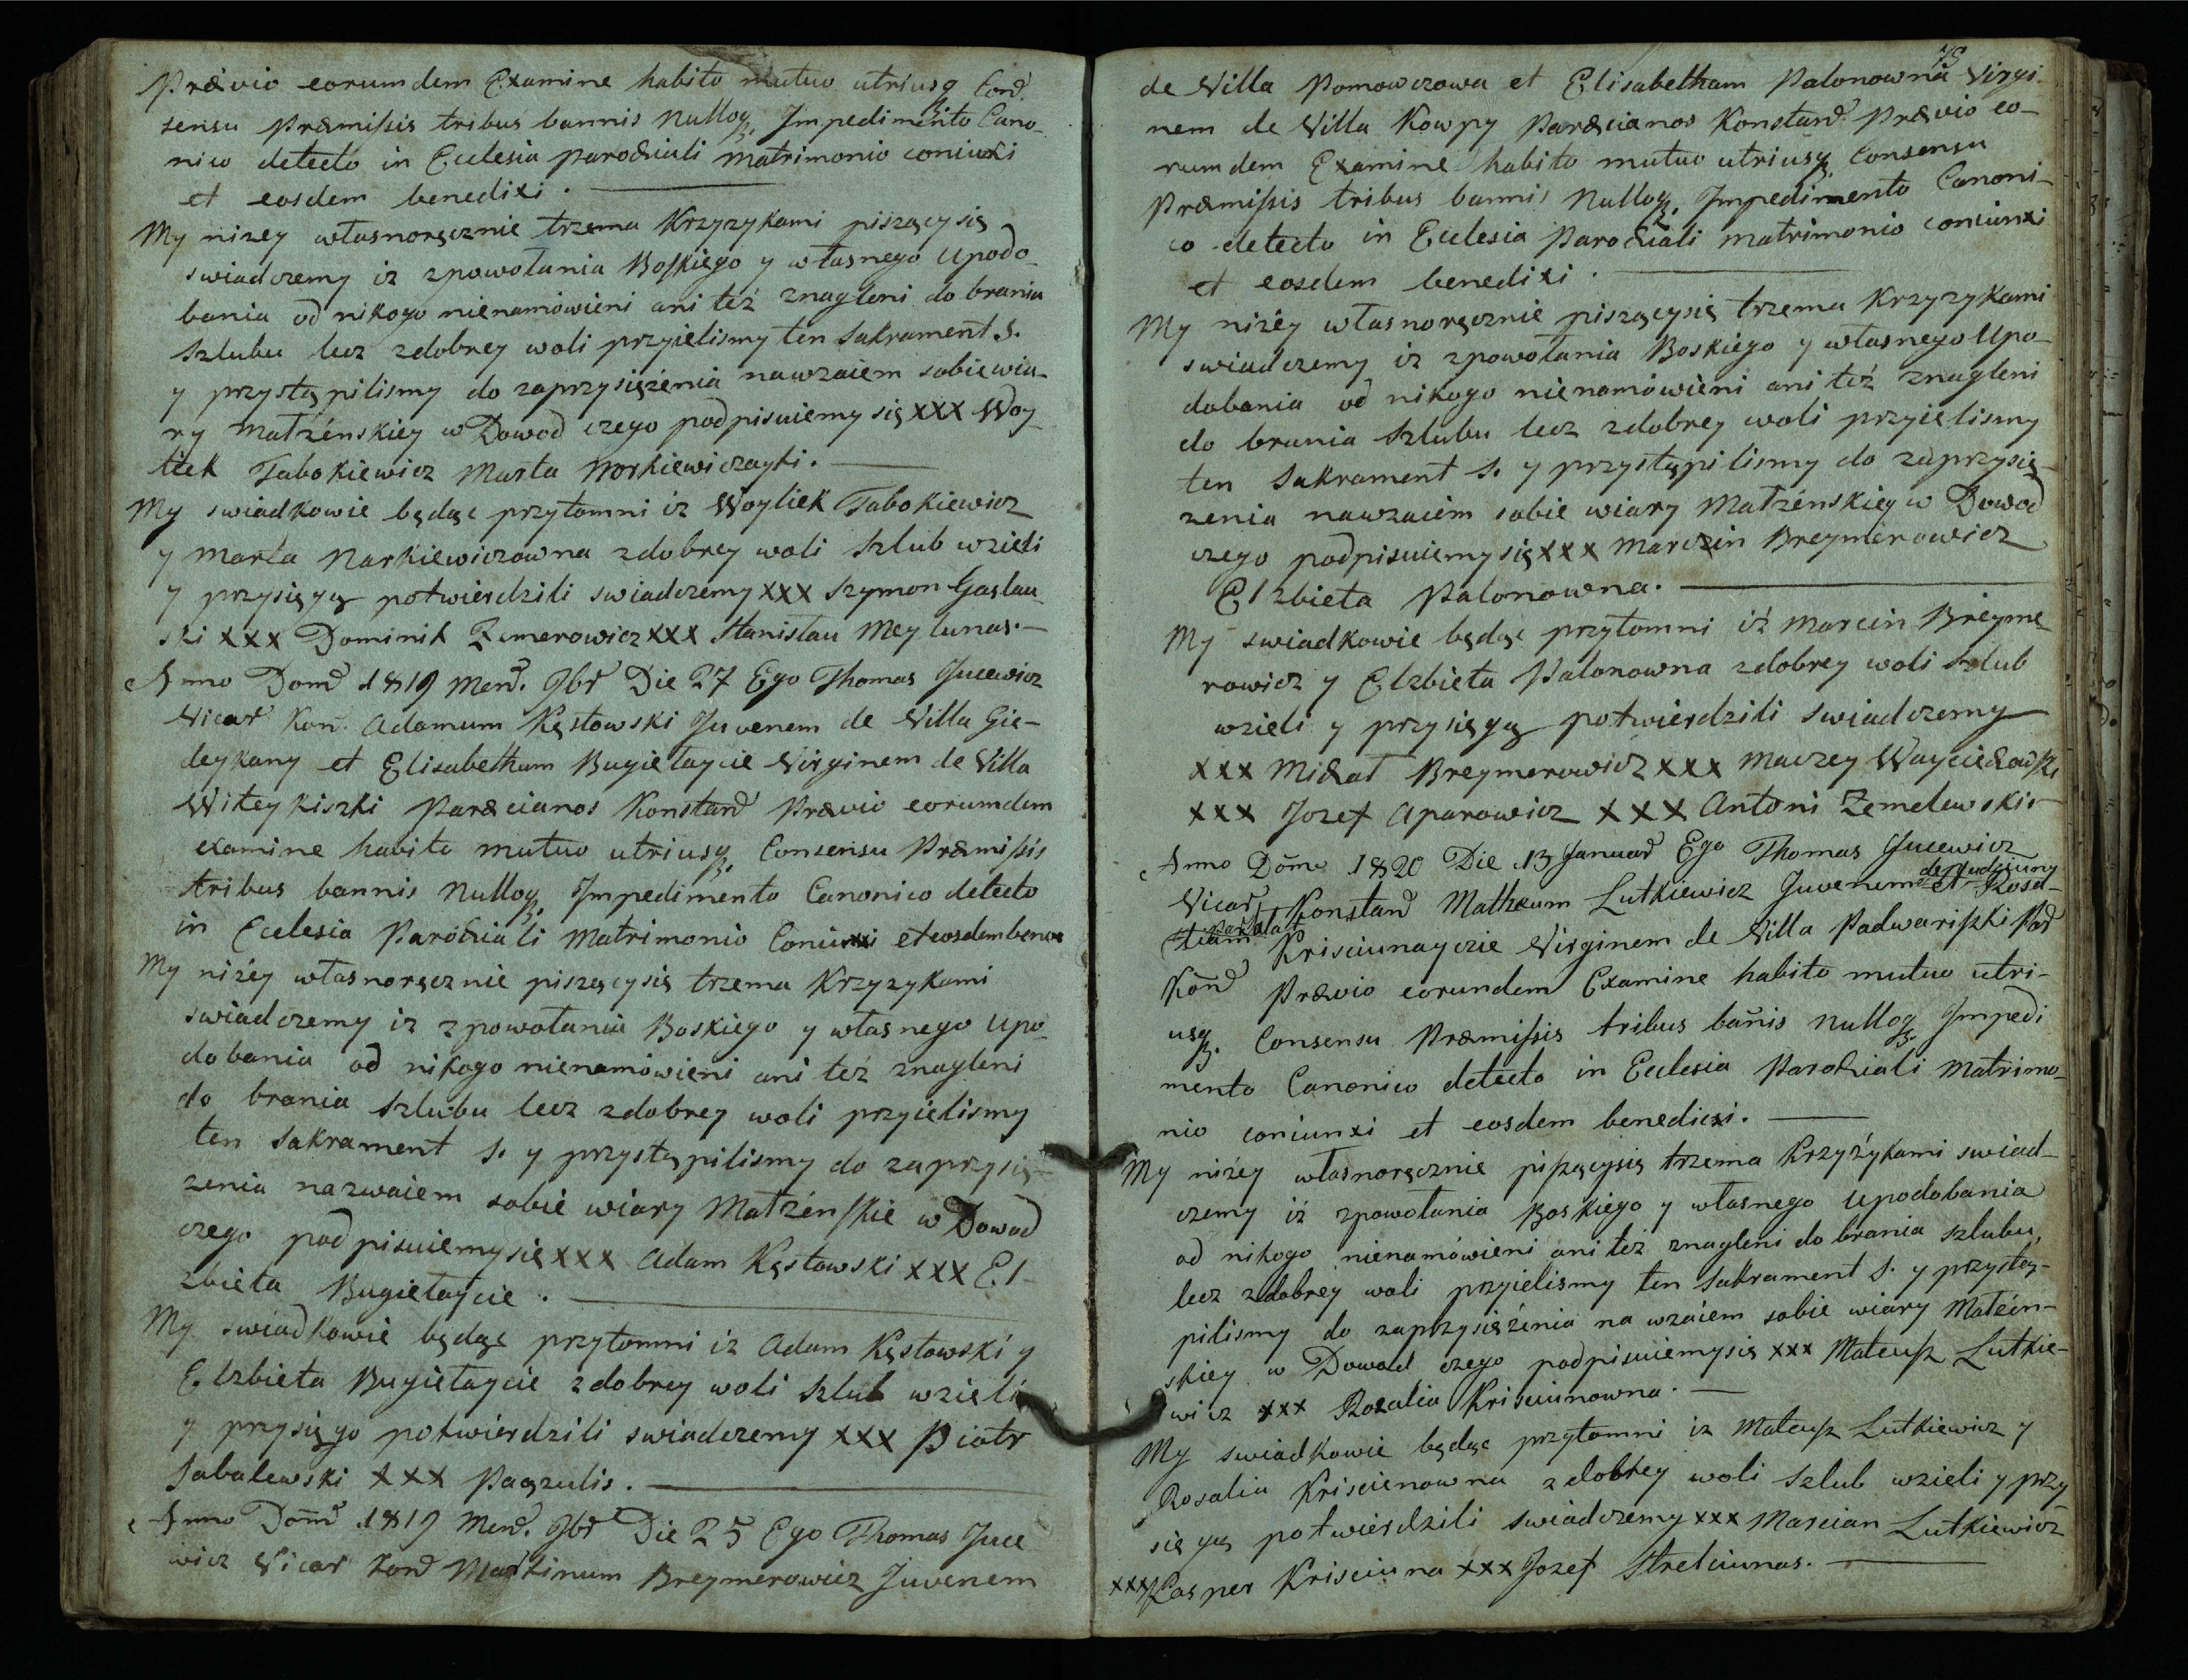 Prævio eorumdem Examine habito mutuo utriusq Cons̃
sensu Præmissis tribus bannis nulloq₃ Impedimento Cano-
nico detecto in Ecclesia parochiali matrimonio coniuxi
et eosdem benedixi.
My nizey własnoręcznie trzema Krzyzykami piszącysię
swiadczemy iz zpowołania Boskiego y własnego Upodo-
bania od nikogo nienamówieni ani też znagleni do brania
Szlubu lecz zdobrey woli przyielismy ten Sakrament S.
y przystąpilismy do zaprzysiężenia nawzaiem sobie wia-
ry Małżénskiey w Dowod czego podpisuiemy się XXX Woy-
tiek Tabokiewicz Marta Norkiewiczayti.
My swiadkowie będąc przytomni iz Woytiek Tabokiewicz
y Marta Narkiewiczowna zdobrey woli Szlub wzieli
y przysięgą potwierdzili swiadczemy XXX Szymon Gaslau-
ski XXX Dominik Zemerowicz XXX Stanisław Meylunas.
Anno Dom̃ 1819 Mens̃. 9br̃ Die 27 Ego Thomas Jucewicz
Vicar̃ Kon. Adamum Kęstowski Juvenem de Villa Gie-
deykany et Elisabetham Bugiełaycie Virginem de Villa
Witeykiszki Paræcianos Konstan̄d Prævio eorumdem
examine habito mutuo utriusq₃ Consensu Præmissis
tribus bannis nulloq₃ Impedimento Canonico detecto
in Ecclesia Parochiali Matrimonio Coniunxi et eosdem bene
My niżey własnoręcznie piszącysię trzema Krzyzykami
swiadczemy iz zpowołania Boskiego y własnego Upo-
dobania od nikogo nienamówieni ani też znagleni
do brania Szlubu lecz zdobrey woli przyielismy
ten Sakrament S. y przystąpilismy do zaprzysię-
zenia nazwaiem sobie wiary Małżénskie w Dowod
czego podpisuiemysię XXX Adam Kęstowski XXX El-
zbieta Bugiełaycie.
My swiadkowie będąc przytomni iz Adam Kęstowski y
Elzbieta Bugiełaycie zdobrey woli Szlub wzieli
y przysięgo potwierdzili swiadczemy XXX Piotr
Sabalewski XXX Pagzulis.
Anno Dom̃ 1819 Mens̃. 9br̃ Die 25 Ego Thomas Juce
wicz Vicar̃ Kon̄d Martinum Breymerowicz Juvenem
78
de Villa Pomowczowa et Elisabetham Palonowna Virgi-
nem de Villa Kowpy Paræcianos Konstan̄d Prævio eo-
rumdem Examine habito mutuo utriusq₃ Consensu
Præmissis tribus bannis Nulloq₃ Impedimento Canoni-
co detecto in Ecclesia Parochiali matrimonio coniunxi
et eosdem benedixi.
My niżey własnoręcznie piszącysię trzema Krzyzykami
swiadczemy iz zpowołania Boskiego y własnego Upo-
dobania od nikogo nienamówieni ani też znagleni
do brania Szlubu lecz zdobrey woli przyielismy
ten Sakrament S. y przystąpilismy do zaprzysię-
zenia nawzaiem sobie wiary Małżénskiey w Dowod
czego podpisuiemysię XXX Marczin Breymerowicz
Elzbieta Palonowna.
My swiadkowie będąc przytomni iż Marcin Breyme-
rowicz y Elzbieta Palonowna zdobrey woli Szlub
wzieli y przysięgą potwierdzili swiadczemy
XXX Michał Breymerowicz XXX Maczey Wayciechowski
XXX Jozef Aparowicz XXX Antoni Zemelewski
Anno Dom̃o 1820 Die 13 Januar̃ Ego Thomas Jucewicz
Vicar̃ Konstan̄d Matheum Lutkiewicz Juvenem de Judziuny et Rosa-
liam Krisciunayczie Virginem de Villa Padwariszki Par̃
Kon̄d Prævio eorundem Examine habito mutuo utri-
usq₃. Consensu Præmissis tribus bañis nulloq₃ Impedi
mento Canonico detecto in Ecclesia Parochiali Matrimo-
nio coniunxi et eosdem benedicxi.
My niżey własnoręcznie piszącysię trzema Krzyżykami swiad-
czemy iż zpowołania Boskiego y własnego Upodobania
od nikogo nienamówieni ani też znagleni do brania szlubu,
lecz zdobrey woli przyielismy ten Sakrament S. y przystą-
pilismy do zaprzysiężenia na wzaiem sobie wiary Małżén-
skiey w Dowod czego podpisuiemysię XXX Mateusz Lutkie-
wicz XXX Rozalia Krisciunowna.
My swiadkowie będąc przytomni iz Mateusz Lutkiewicz y
Rosalia Kriscienowna zdobrey woli Szlub wzieli y przy
sięgą potwierdzili swiadczemy XXX Marcian Lutkiewicz
XXX Kasper Krisciuna XXX Jozef Strelciunas.